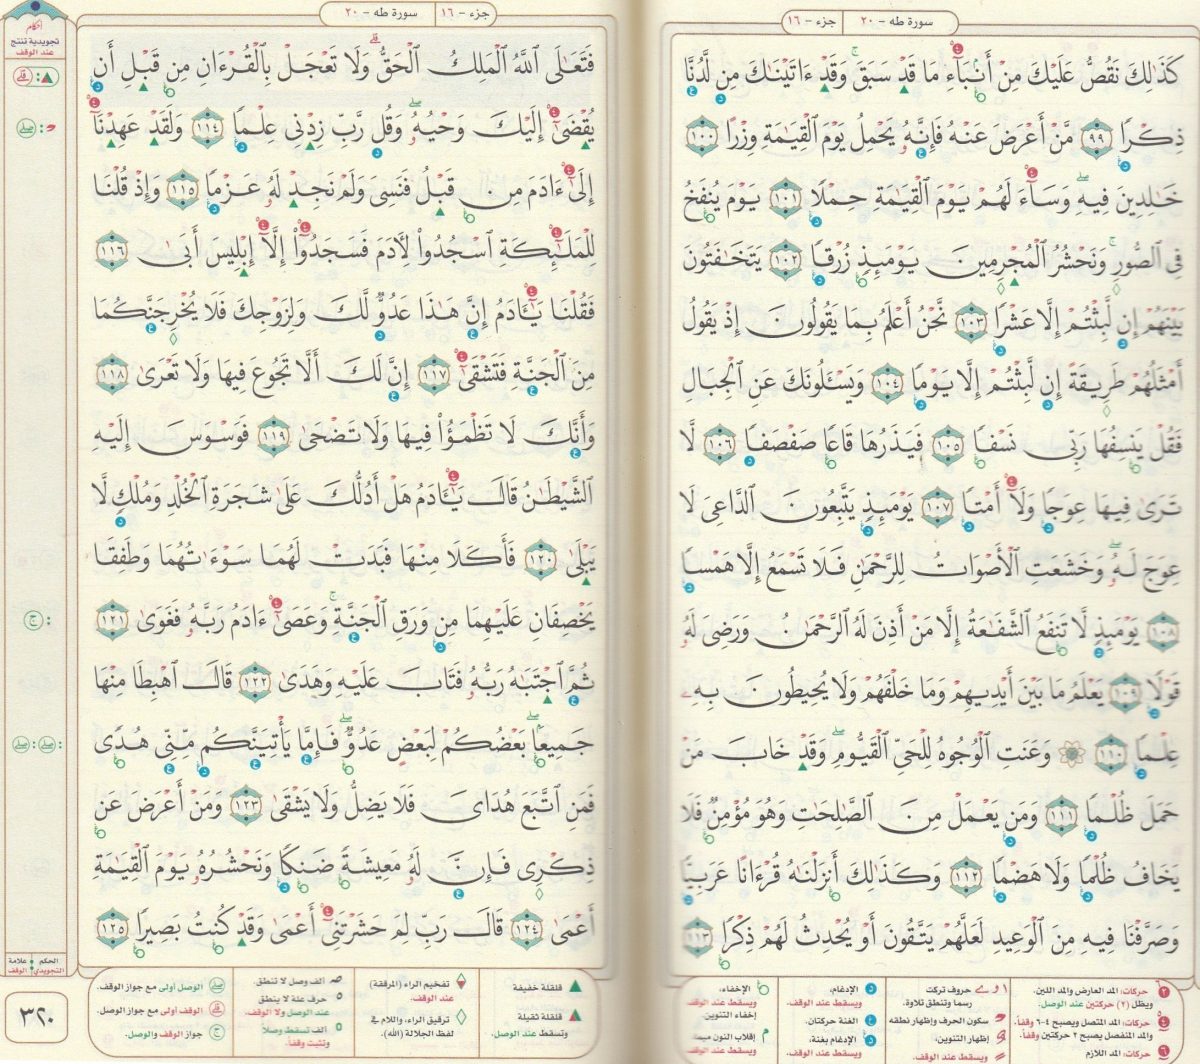 سورة طه - ٢٠
جزء - ١٦
كَذَٰلِكَ نَقُصُّ عَلَيْكَ مِنْ أَنۢبَآءِ مَا قَدْ سَبَقَ ۚ وَقَدْ ءَاتَيْنَٰكَ مِن لَّدُنَّا
ذِكْرًا ٩٩ مَّنْ أَعْرَضَ عَنْهُ فَإِنَّهُۥ يَحْمِلُ يَوْمَ ٱلْقِيَٰمَةِ وِزْرًا ١٠٠
خَٰلِدِينَ فِيهِ ۖ وَسَآءَ لَهُمْ يَوْمَ ٱلْقِيَٰمَةِ حِمْلًا ١٠١ يَوْمَ يُنفَخُ
فِى ٱلصُّورِ ۚ وَنَحْشُرُ ٱلْمُجْرِمِينَ يَوْمَئِذٍ زُرْقًا ١٠٢ يَتَخَٰفَتُونَ
بَيْنَهُمْ إِن لَّبِثْتُمْ إِلَّا عَشْرًا ١٠٣ نَّحْنُ أَعْلَمُ بِمَا يَقُولُونَ إِذْ يَقُولُ
أَمْثَلُهُمْ طَرِيقَةً إِن لَّبِثْتُمْ إِلَّا يَوْمًا ١٠٤ وَيَسْـَٔلُونَكَ عَنِ ٱلْجِبَالِ
فَقُلْ يَنسِفُهَا رَبِّى نَسْفًا ١٠٥ فَيَذَرُهَا قَاعًا صَفْصَفًا ١٠٦ لَّا
تَرَىٰ فِيهَا عِوَجًا وَلَآ أَمْتًا ١٠٧ يَوْمَئِذٍ يَتَّبِعُونَ ٱلدَّاعِىَ لَا
عِوَجَ لَهُۥ ۖ وَخَشَعَتِ ٱلْأَصْوَاتُ لِلرَّحْمَٰنِ فَلَا تَسْمَعُ إِلَّا هَمْسًا
١٠٨ يَوْمَئِذٍ لَّا تَنفَعُ ٱلشَّفَٰعَةُ إِلَّا مَنْ أَذِنَ لَهُ ٱلرَّحْمَٰنُ وَرَضِىَ لَهُۥ
قَوْلًا ١٠٩ يَعْلَمُ مَا بَيْنَ أَيْدِيهِمْ وَمَا خَلْفَهُمْ وَلَا يُحِيطُونَ بِهِۦ
عِلْمًا ١١٠ ۞ وَعَنَتِ ٱلْوُجُوهُ لِلْحَىِّ ٱلْقَيُّومِ ۖ وَقَدْ خَابَ مَنْ
حَمَلَ ظُلْمًا ١١١ وَمَن يَعْمَلْ مِنَ ٱلصَّٰلِحَٰتِ وَهُوَ مُؤْمِنٌ فَلَا
يَخَافُ ظُلْمًا وَلَا هَضْمًا ١١٢ وَكَذَٰلِكَ أَنزَلْنَٰهُ قُرْءَانًا عَرَبِيًّا
وَصَرَّفْنَا فِيهِ مِنَ ٱلْوَعِيدِ لَعَلَّهُمْ يَتَّقُونَ أَوْ يُحْدِثُ لَهُمْ ذِكْرًا ١١٣
حركات: المد العارض والمد اللين.
ويظل (٢) حركتين عند الوصل.
حركات: المد المتصل ويصبح ٤-٦ وقفاً.
والمد المنفصل يصبح ٢ حركتين وقفاً.
حركات: المد اللازم
حروف تركت
رسما وتنطق تلاوة.
سكون الحرف وإظهار نطقه
إظهار التنوين،
ويسقط عند الوقف.
الإدغام،
ويسقط عند الوقف.
الغنة حركتان.
الإدغام بغنة،
ويسقط عند الوقف
الإخفاء،
ويسقط عند الوقف
إخفاء التنوين.
إقلاب النون ميما
ويسقط عند الوقف
جزء - ١٦
سورة طه - ٢٠
فَتَعَٰلَى ٱللَّهُ ٱلْمَلِكُ ٱلْحَقُّ ۗ وَلَا تَعْجَلْ بِٱلْقُرْءَانِ مِن قَبْلِ أَن
يُقْضَىٰٓ إِلَيْكَ وَحْيُهُۥ ۖ وَقُل رَّبِّ زِدْنِى عِلْمًا ١١٤ وَلَقَدْ عَهِدْنَآ
إِلَىٰٓ ءَادَمَ مِن قَبْلُ فَنَسِىَ وَلَمْ نَجِدْ لَهُۥ عَزْمًا ١١٥ وَإِذْ قُلْنَا
لِلْمَلَٰٓئِكَةِ ٱسْجُدُوا۟ لِءَادَمَ فَسَجَدُوٓا۟ إِلَّآ إِبْلِيسَ أَبَىٰ ١١٦
فَقُلْنَا يَٰٓـَٔادَمُ إِنَّ هَٰذَا عَدُوٌّ لَّكَ وَلِزَوْجِكَ فَلَا يُخْرِجَنَّكُمَا
مِنَ ٱلْجَنَّةِ فَتَشْقَىٰٓ ١١٧ إِنَّ لَكَ أَلَّا تَجُوعَ فِيهَا وَلَا تَعْرَىٰ ١١٨
وَأَنَّكَ لَا تَظْمَؤُا۟ فِيهَا وَلَا تَضْحَىٰ ١١٩ فَوَسْوَسَ إِلَيْهِ
ٱلشَّيْطَٰنُ قَالَ يَٰٓـَٔادَمُ هَلْ أَدُلُّكَ عَلَىٰ شَجَرَةِ ٱلْخُلْدِ وَمُلْكٍ لَّا
يَبْلَىٰ ١٢٠ فَأَكَلَا مِنْهَا فَبَدَتْ لَهُمَا سَوْءَٰتُهُمَا وَطَفِقَا
يَخْصِفَانِ عَلَيْهِمَا مِن وَرَقِ ٱلْجَنَّةِ ۚ وَعَصَىٰٓ ءَادَمُ رَبَّهُۥ فَغَوَىٰ ١٢١
ثُمَّ ٱجْتَبَٰهُ رَبُّهُۥ فَتَابَ عَلَيْهِ وَهَدَىٰ ١٢٢ قَالَ ٱهْبِطَا مِنْهَا
جَمِيعًۢا ۖ بَعْضُكُمْ لِبَعْضٍ عَدُوٌّ ۖ فَإِمَّا يَأْتِيَنَّكُم مِّنِّى هُدًى
فَمَنِ ٱتَّبَعَ هُدَاىَ فَلَا يَضِلُّ وَلَا يَشْقَىٰ ١٢٣ وَمَنْ أَعْرَضَ عَن
ذِكْرِى فَإِنَّ لَهُۥ مَعِيشَةً ضَنكًا وَنَحْشُرُهُۥ يَوْمَ ٱلْقِيَٰمَةِ
أَعْمَىٰ ١٢٤ قَالَ رَبِّ لِمَ حَشَرْتَنِىٓ أَعْمَىٰ وَقَدْ كُنتُ بَصِيرًا ١٢٥
قلقلة خفيفة
قلقلة ثقيلة
وتسقط عند الوصل
تفخيم الراء (المرققة)
عند الوقف.
ترقيق الراء، واللام في
لفظ الجلالة (الله).
ألف وصل لا تنطق
حرف علة لا ينطق
عند الوصل ولا الوقف.
ألف تسقط وصلاً
وتثبت وقفاً.
الوصل أولى مع جواز الوقف.
الوقف أولى مع جواز الوصل.
جواز الوقف والوصل.
أحكام
تجويدية تنتج
عند الوقف
الحكم التجويدي
علامة الوقف
٣٢٠